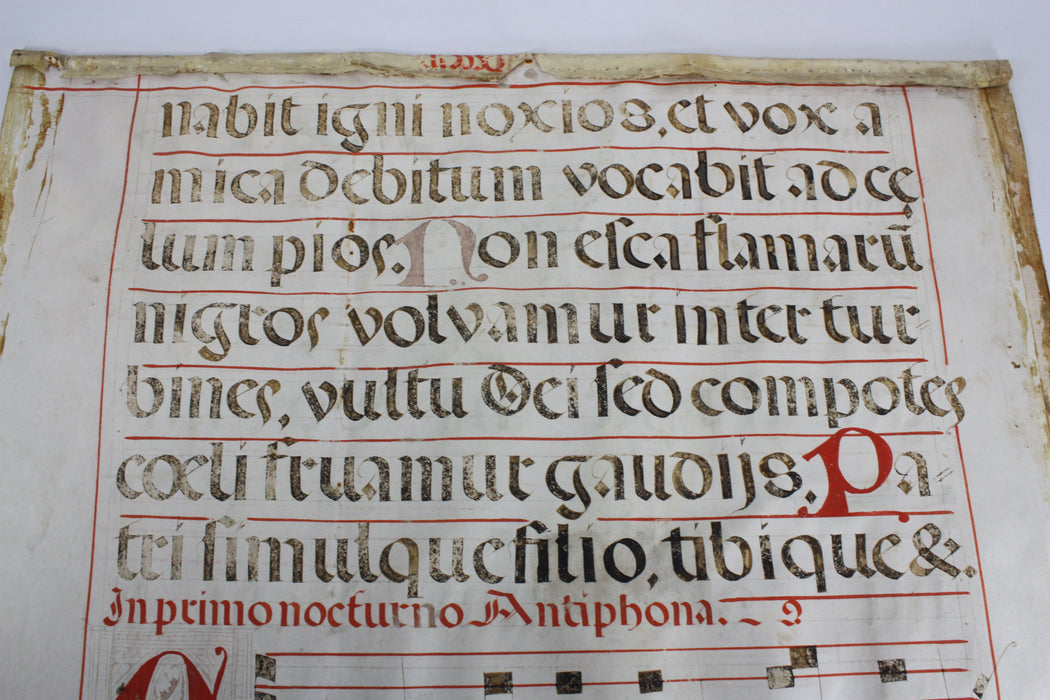 nabit igni noxios, et vox a
mica debitum vocabit ad cę
lum pios. Non eſca flamarū
nigros volvamur inter tur
bines, vultu Dei ſed compotes
cœli fruamur gaudijs. Pa
tri ſimulque filio, tibique &.
In primo nocturno Antiphona.